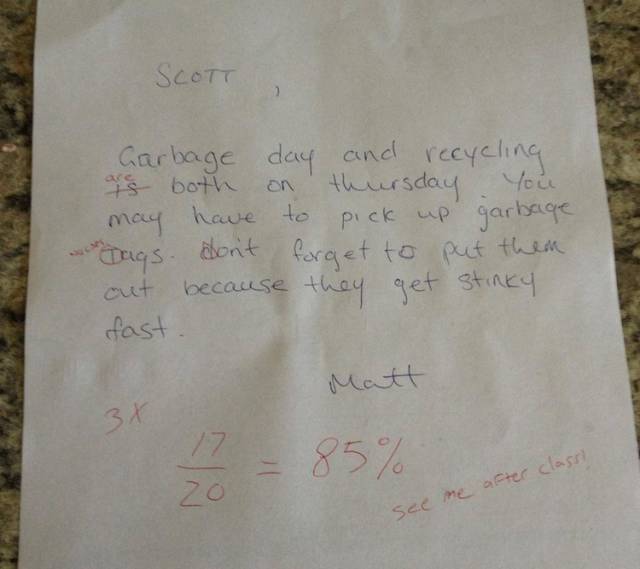 SCOTT,
Garbage day and recycling
are
is both on thursday. You
may have to pick up garbage
Tags. don't forget to put them
out because they get stinky
fast.
Matt
3X
17
20 = 85%
see me after class!